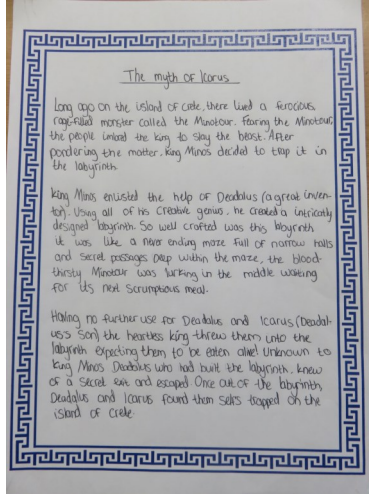 The myth of Icarus
Long ago on the island of crete, there lived a ferocious,
rage-filled monster called the Minotour. Fearing the Minotour,
the people the king to slay the beast. After
pondering the matter, King Minos decided to trap it in
the labyrinth
King Minos enlisted the help of Deadalus (a great inven-
tor). Using all of his creative genius, he created a intricatly
designed labyrinth. So well crafted was this labyrinth
it was like a never ending maze full of narrow halls
and secret passages Deep within the maze, the blood-
thirsty Minotaur was lurking in the middle waiting
for its next scrumptious meal.
Having no further use for Deadalus and Icarus (Deadal-
us's son) the heartless king threw them into the
labyrinth expecting them to be eaten alive! Unknown to
King Minos Deadalus who had built the labyrinth, knew
of a secret exit and escaped. Once out of the labyrinth,
Deadalus and Icarus found them selvs trapped on the
island of Crete